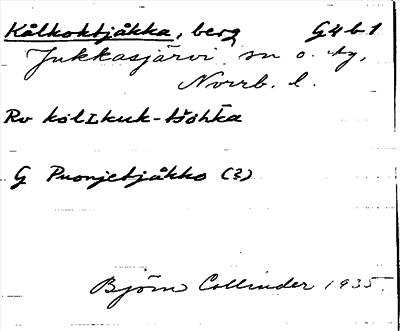 Kålkoktjåkka, berg G4b1
Jukkasjärvi sn o. tg,
Norrb. l.
Rv kolɪkuk-tšohka
G Puonjetjåkko (?)
Björn Collinder 1935.